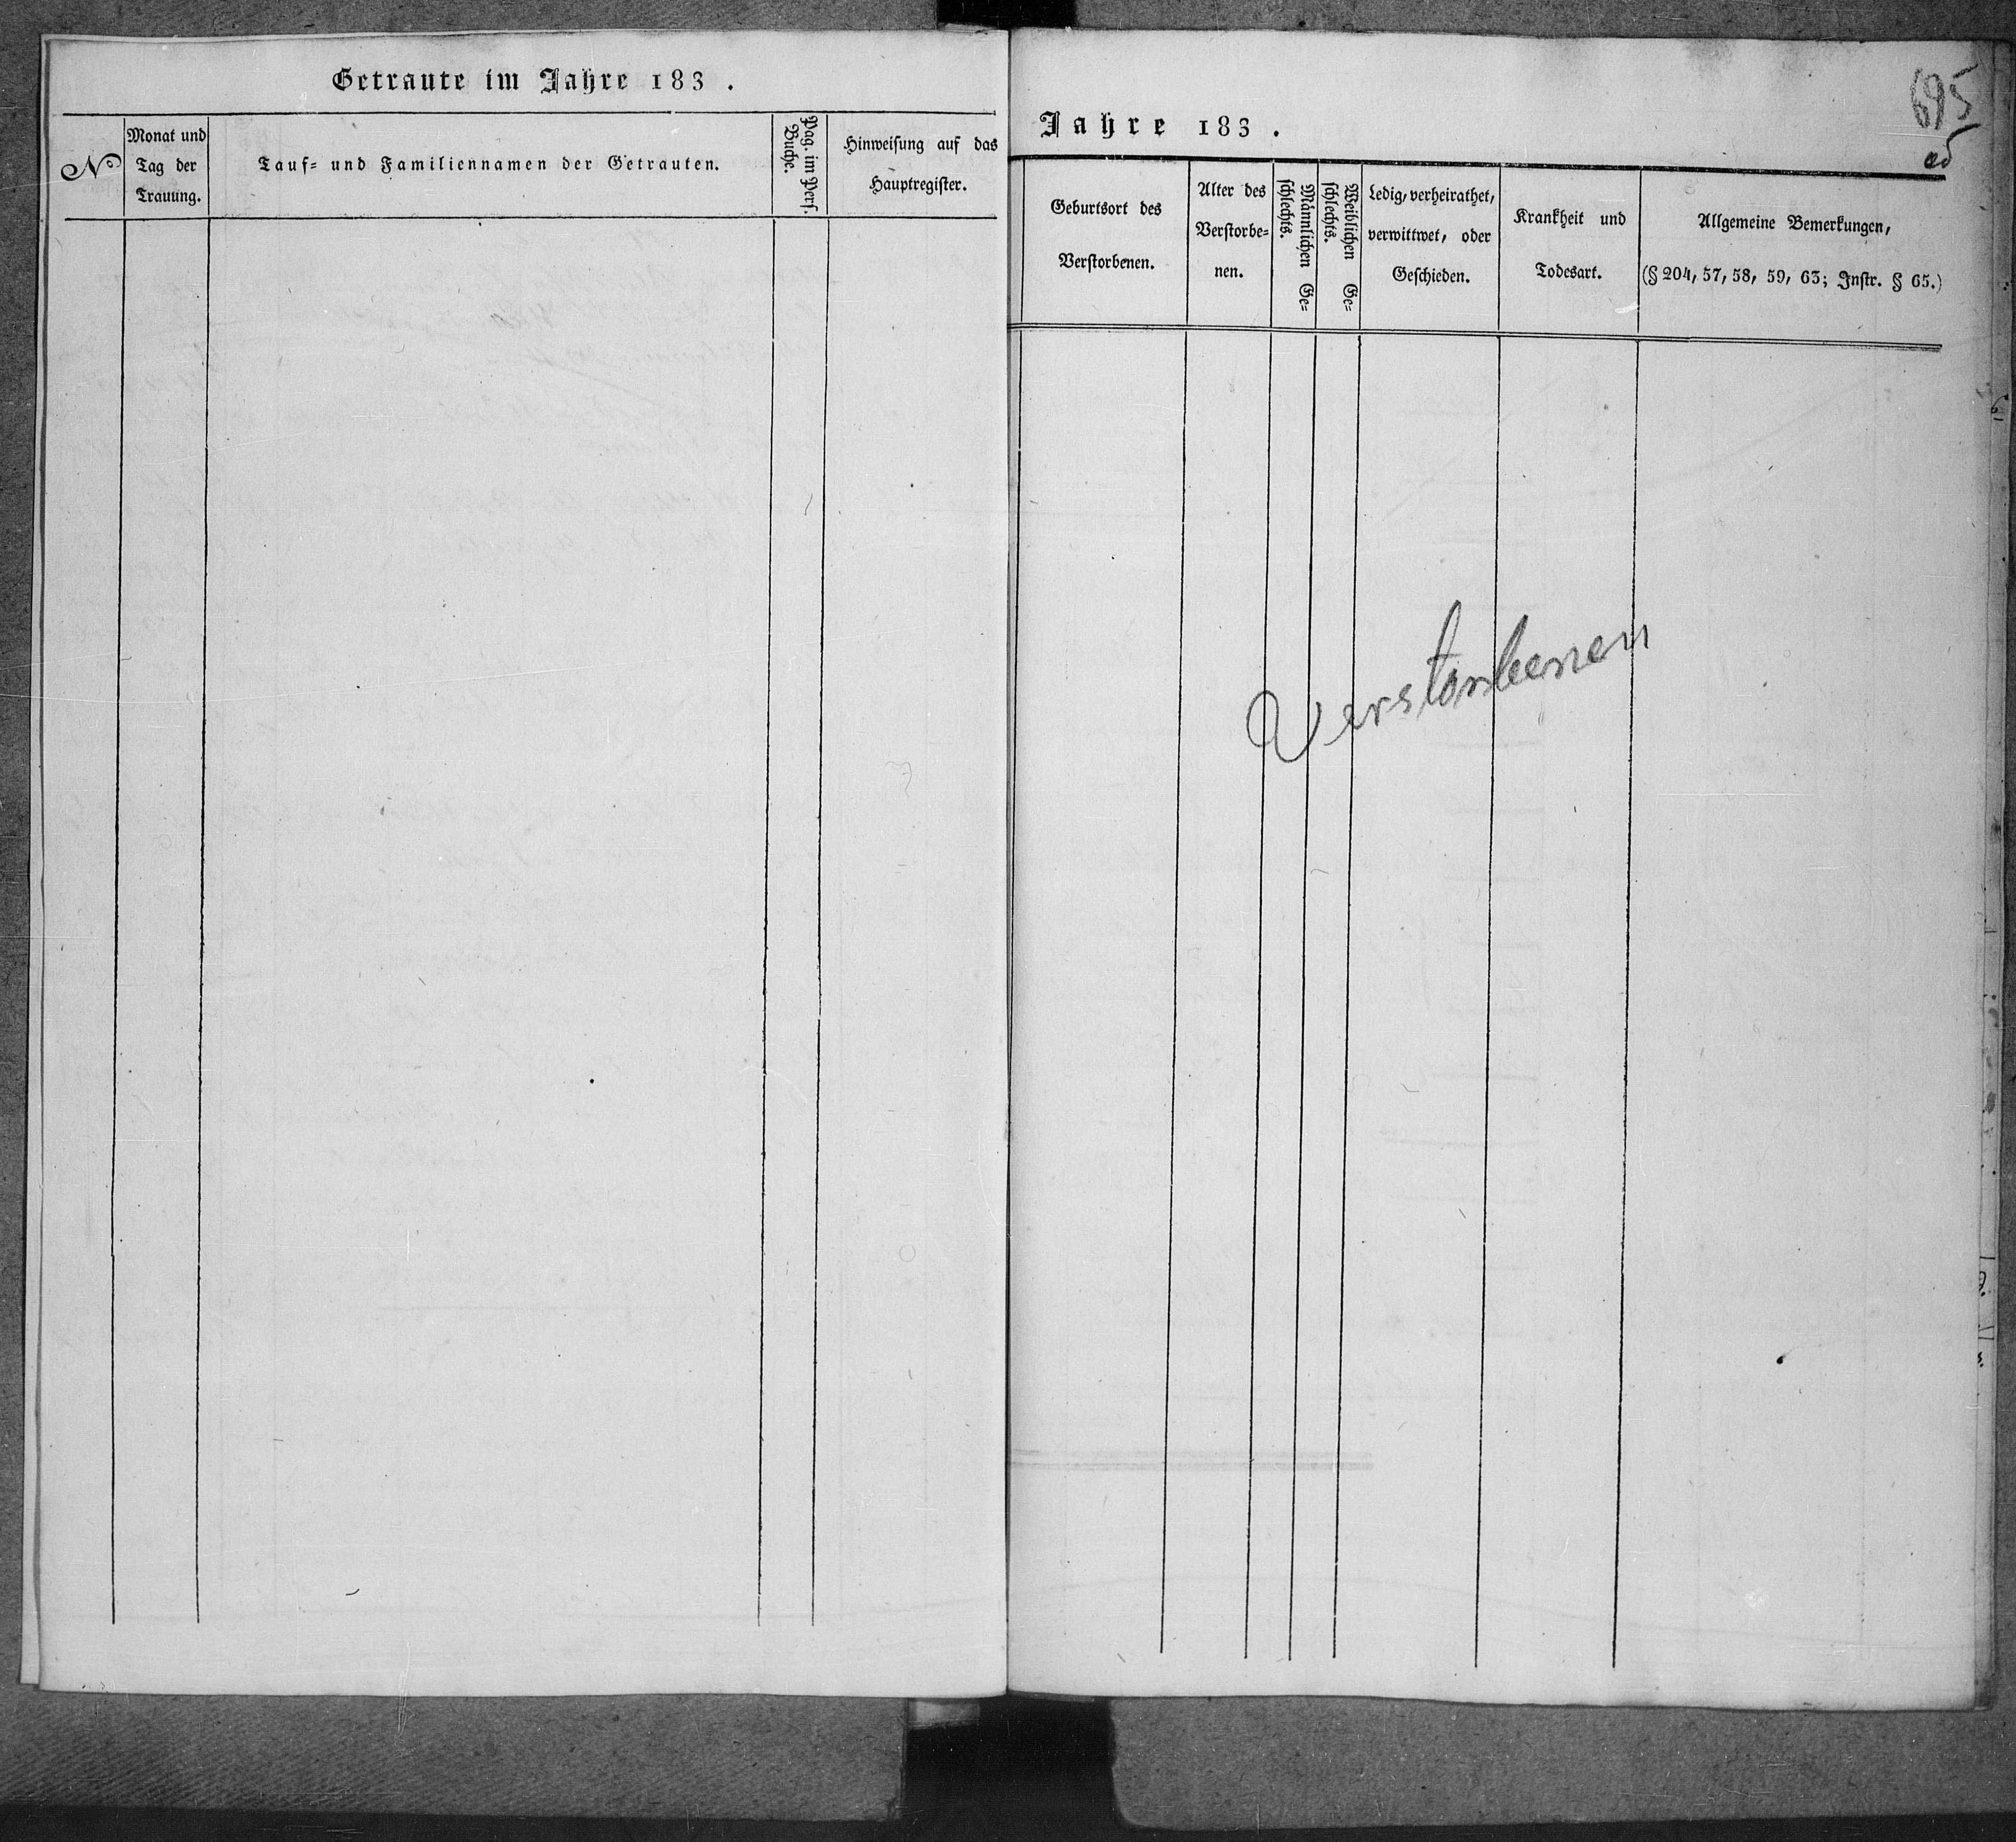 Getraute im Jahre 183 .
N
Monat und
Tag der
Trauung.
Tauf= und Familiennamen der Getrauten.
Pag. im Pers.
Buche.
Hinweisung auf das
Hauptregister.
695
Jahre 183 .
Geburtsort des
Verstorbenen.
Alter des
Verstorbe=
nen.
Männlichen Ge=
schlechts.
Weiblichen Ge=
schlechts.
Ledig, verheirathet,
verwittwet, oder
Geschieden.
Krankheit und
Todesart.
Allgemeine Bemerkungen,
(§ 204, 57, 58, 59, 63; Instr. § 65.)
Verstorbenen